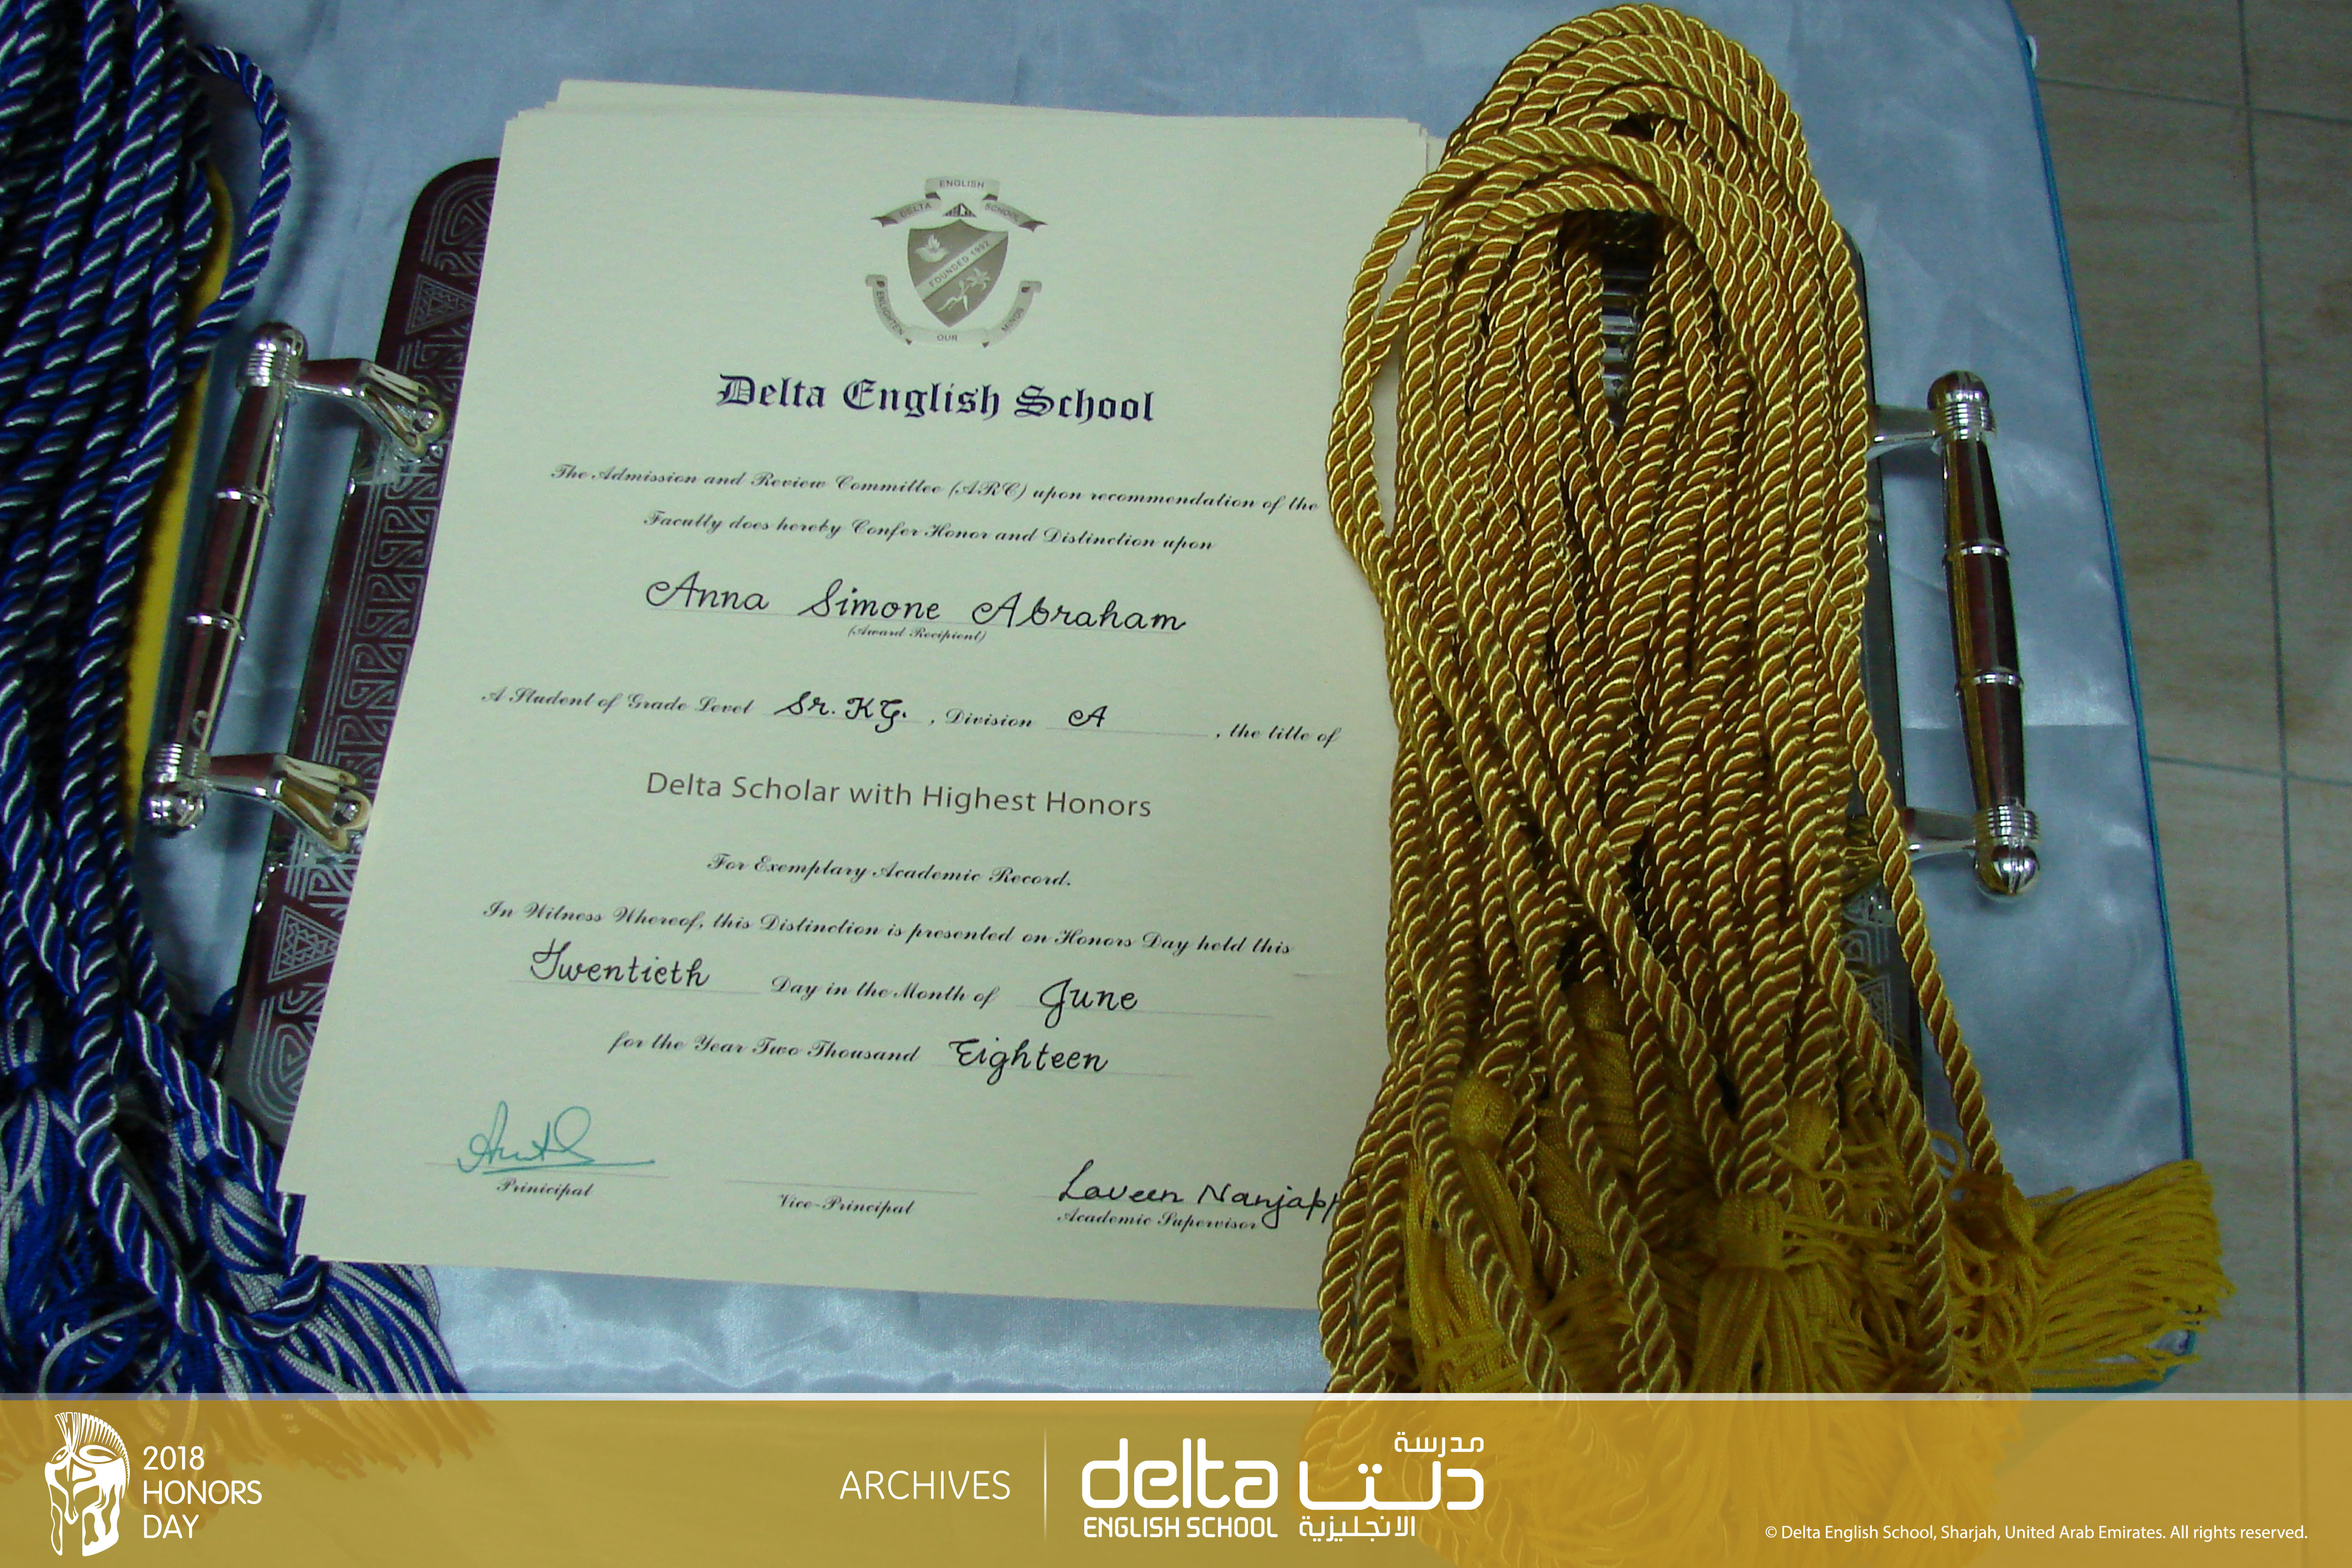 ENGLISH
DELTA SCHOOL
FOUNDED 1992
ENLIGHTEN OUR MINDS
Delta English School
The Admission and Review Committee (ARC) upon recommendation of the
Faculty does hereby Confer Honor and Distinction upon
Anna Simone Abraham
(Award Recipient)
A Student of Grade Level Sr. KG. , Division A , the title of
Delta Scholar with Highest Honors
For Exemplary Academic Record.
In Witness Whereof, this Distinction is presented on Honors Day held this
Twentieth Day in the Month of June
for the Year Two Thousand Eighteen
Laveen
Prinicipal Vice-Principal Academic Supervisor
2018
HONORS
DAY
ARCHIVES
delta
ENGLISH SCHOOL
مدرسة
دلتا
الانجليزية
© Delta English School, Sharjah, United Arab Emirates. All rights reserved.